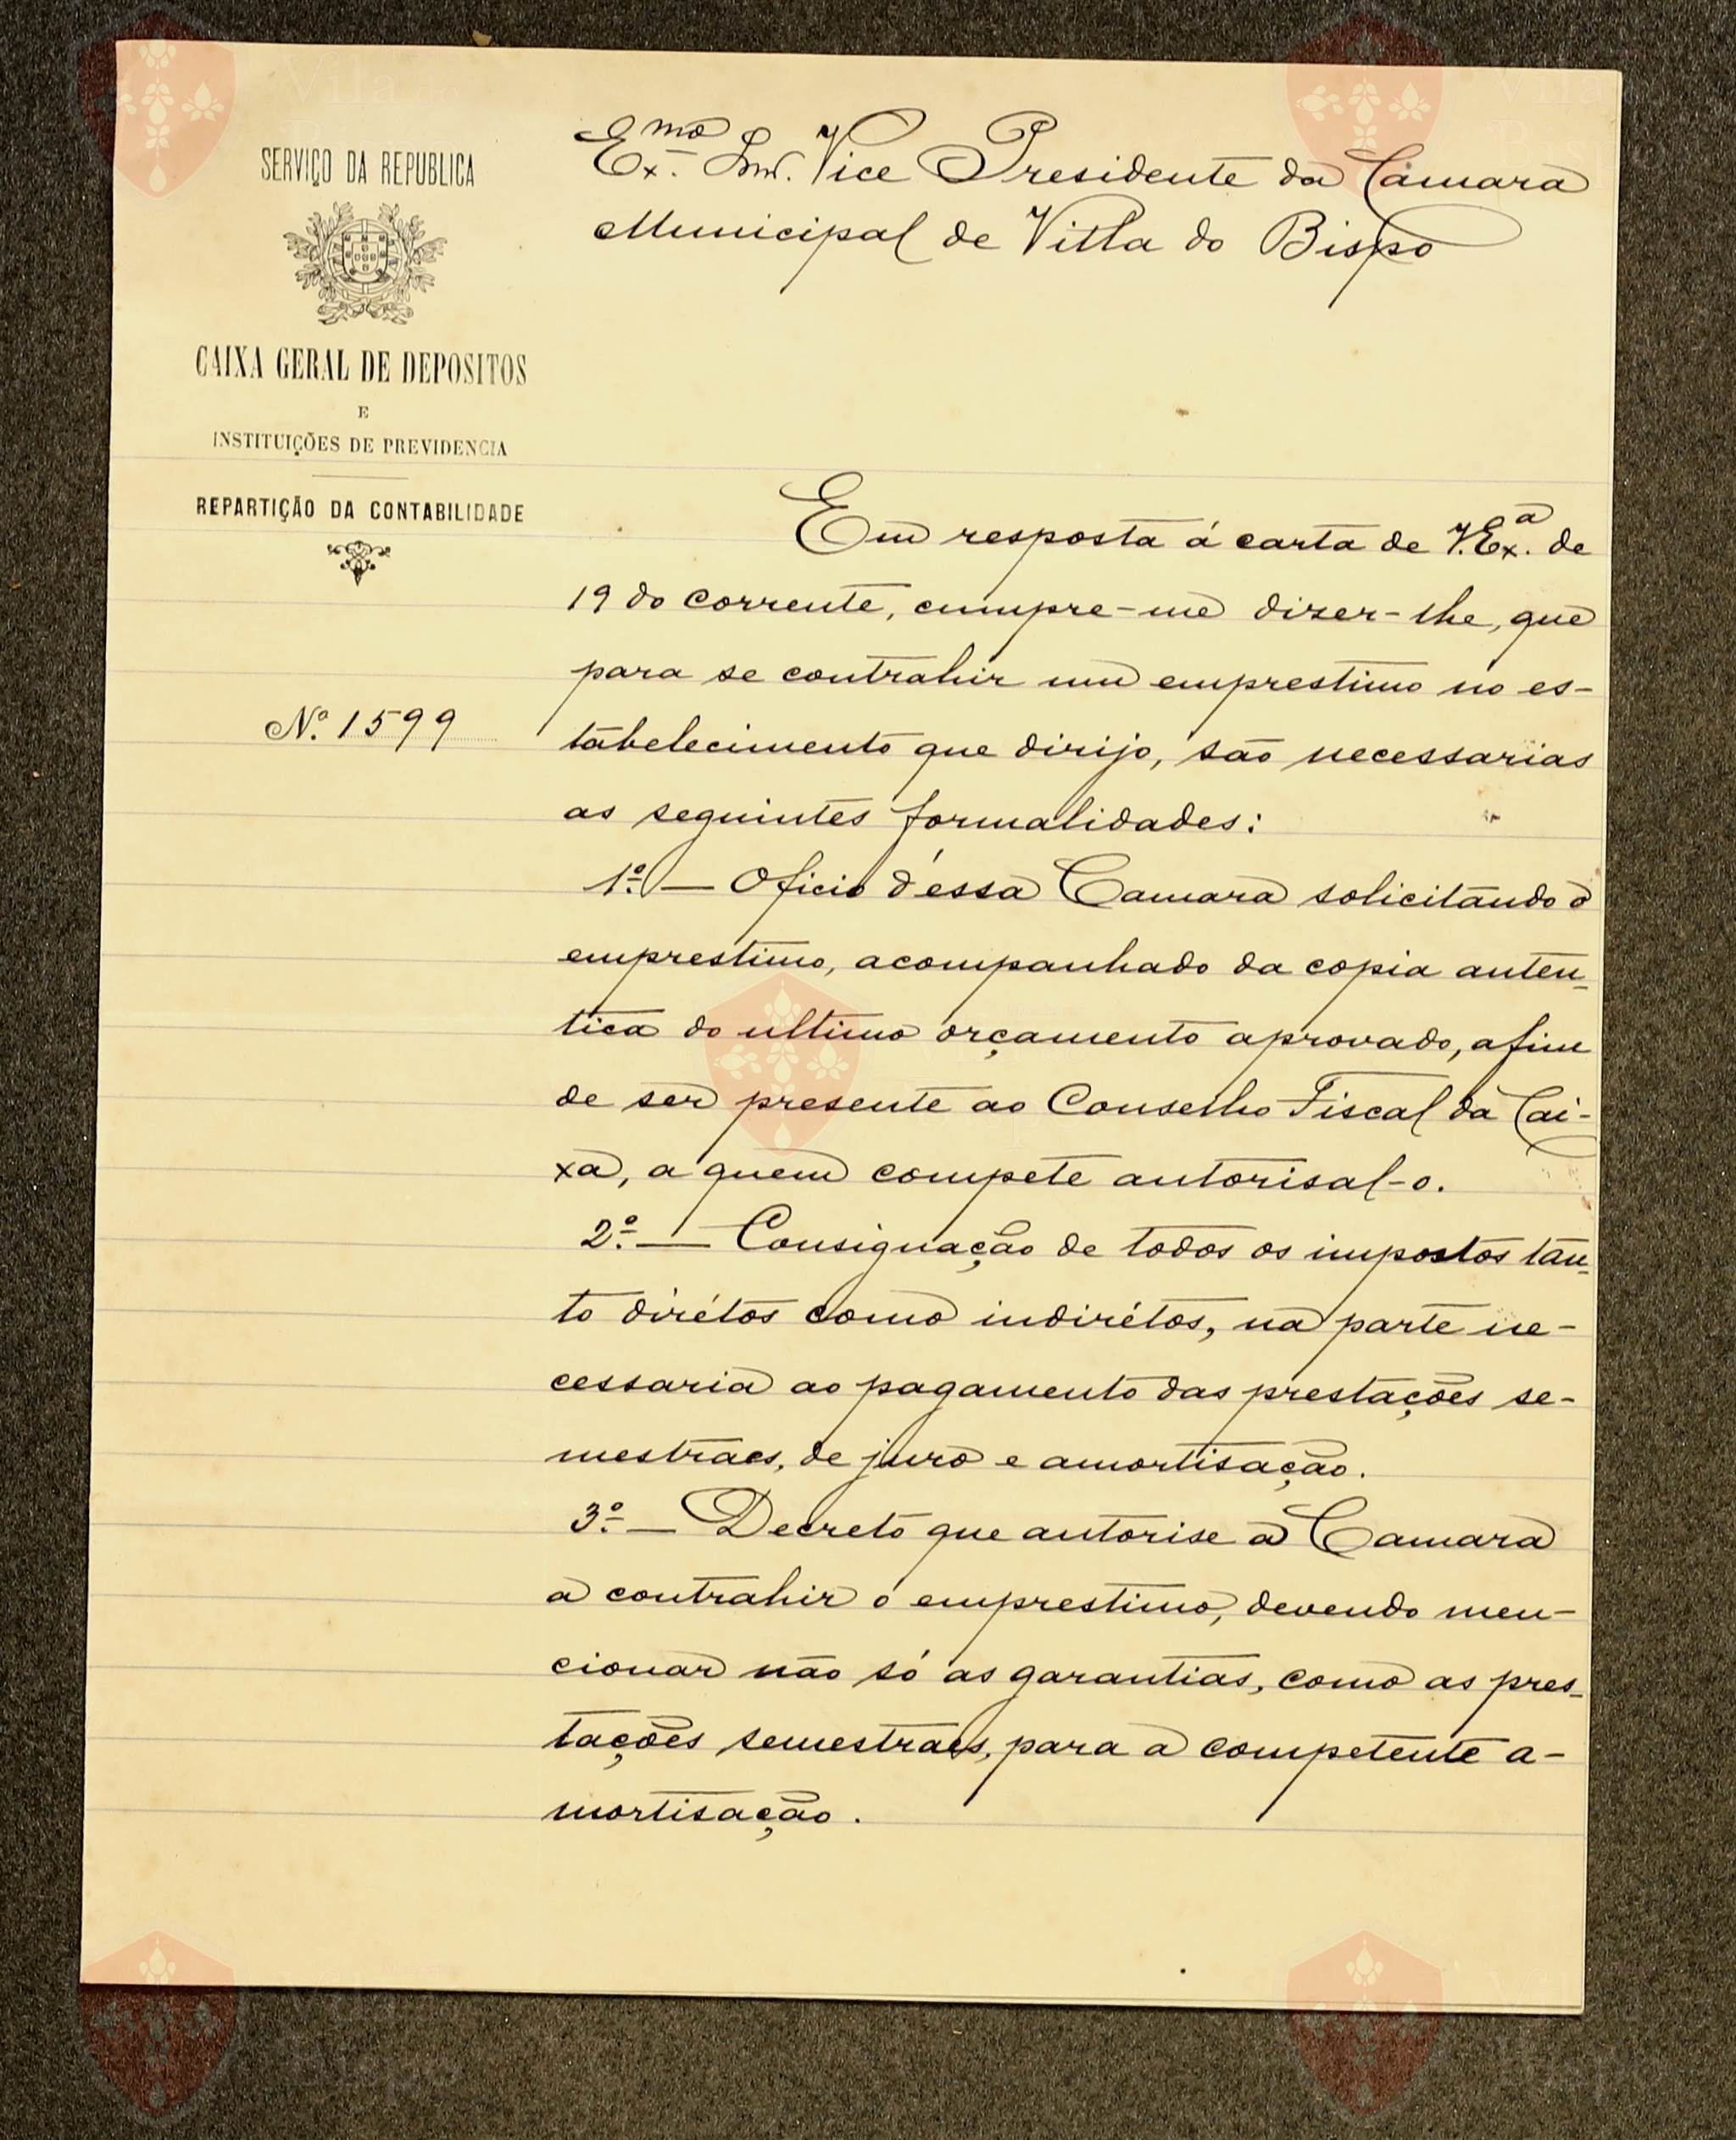 SERVIÇO DA REPUBLICA
CAIXA GERAL DE DEPOSITOS
E
INSTITUIÇÕES DE PREVIDENCIA
REPARTIÇÃO DA CONTABILIDADE
Nº. 1599
Exmo. Snr. Vice Presidente da Camara
Municipal de Villa do Bispo
Em resposta á carta de V. Exª. de
19 do corrente, cumpre-me dizer-lhe, que
para se contrahir um emprestimo no es-
tabelecimento que dirijo, são necessarias
as seguintes formalidades:
1º. — Oficio d'essa Camara solicitando o
emprestimo, acompanhado da copia auten-
tica do ultimo orçamento aprovado, afim
de ser presente ao Conselho Fiscal da Cai-
xa, a quem compete autorisal-o.
2º. — Consignação de todos os impostos tan-
to dirétos como indirétos, na parte ne-
cessaria ao pagamento das prestações se-
mestraes, de juro e amortisação.
3º. — Decreto que autorise a Camara
a contrahir o emprestimo, devendo men-
cionar não só as garantias, como as pres-
tações semestraes, para a competente a-
mortisação.